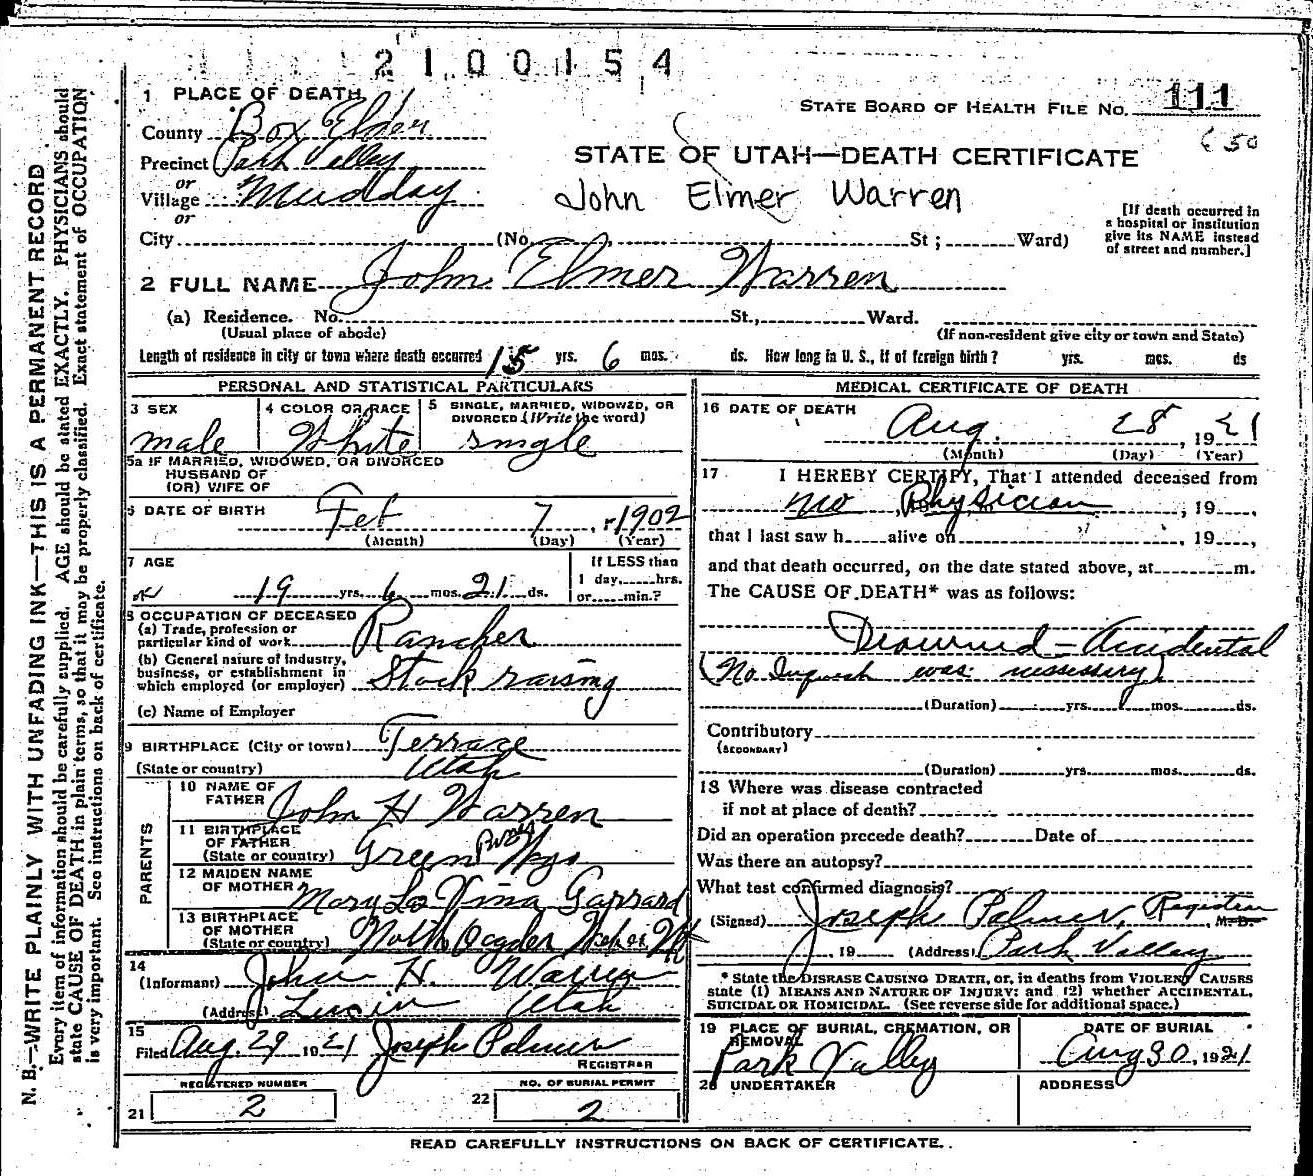 2100154
1 PLACE OF DEATH
STATE BOARD OF HEALTH FILE NO. 111
County Box Elder
650
Precinct Park Valley
STATE OF UTAH—DEATH CERTIFICATE
or
Village Mudday
John Elmer Warren
or
[If death occurred in a hospital or institution give its NAME instead of street and number.]
City (No. St ; Ward)
2 FULL NAME John Elmer Warren
(a) Residence. No. St., Ward.
(Usual place of abode) (If non-resident give city or town and State)
Length of residence in city or town where death occurred 15 yrs. 6 mos. ds. How long in U. S., if of foreign birth? yrs. mos. ds
PERSONAL AND STATISTICAL PARTICULARS
3 SEX
male
4 COLOR OR RACE
White
5 SINGLE, MARRIED, WIDOWED, OR DIVORCED (Write the word)
single
5a IF MARRIED, WIDOWED, OR DIVORCED
HUSBAND OF
(OR) WIFE OF
6 DATE OF BIRTH
Feb 7, 1902
(Month) (Day) (Year)
7 AGE
19 yrs. 6 mos. 21 ds.
If LESS than
1 day, hrs.
or min.?
8 OCCUPATION OF DECEASED
(a) Trade, profession or
particular kind of work Rancher
(b) General nature of industry,
business, or establishment in
which employed (or employer) Stock raising
(c) Name of Employer
9 BIRTHPLACE (City or town) Terrace
(State or country) Utah
PARENTS
10 NAME OF
FATHER John H Warren
11 BIRTHPLACE
OF FATHER
(State or country) Green River Wyo
12 MAIDEN NAME
OF MOTHER Mary La Vina Garrard
13 BIRTHPLACE
OF MOTHER
(State or country) North Ogden Ut
14
(Informant) John H. Warren
(Address) Lucin Utah
15
Filed Aug. 29 1921 Joseph Palmer
REGISTRAR
REGISTERED NUMBER
21 2
NO. OF BURIAL PERMIT
22 2
MEDICAL CERTIFICATE OF DEATH
16 DATE OF DEATH
Aug. 28, 1921
(Month) (Day) (Year)
17 I HEREBY CERTIFY, That I attended deceased from
no Physician, 19
that I last saw h alive on , 19 ,
and that death occurred, on the date stated above, at m.
The CAUSE OF DEATH* was as follows:
Drowned - Accidental
(No Inquest was nessessary)
(Duration) yrs. mos. ds.
Contributory
(SECONDARY)
(Duration) yrs. mos. ds.
18 Where was disease contracted
if not at place of death?
Did an operation precede death? Date of
Was there an autopsy?
What test confirmed diagnosis?
(Signed) Joseph Palmer, Registrar M.D.
, 19 (Address) Park Valley
* State the DISEASE CAUSING DEATH, or, in deaths from VIOLENT CAUSES
state (1) MEANS AND NATURE OF INJURY; and (2) whether ACCIDENTAL,
SUICIDAL OR HOMICIDAL. (See reverse side for additional space.)
19 PLACE OF BURIAL, CREMATION, OR
REMOVAL
Park Valley
DATE OF BURIAL
Aug 30, 1921
20 UNDERTAKER
ADDRESS
READ CAREFULLY INSTRUCTIONS ON BACK OF CERTIFICATE.
N. B.—WRITE PLAINLY WITH UNFADING INK—THIS IS A PERMANENT RECORD
Every item of information should be carefully supplied. AGE should be stated EXACTLY. PHYSICIANS should
state CAUSE OF DEATH in plain terms, so that it may be properly classified. Exact statement of OCCUPATION
is very important. See instructions on back of certificate.